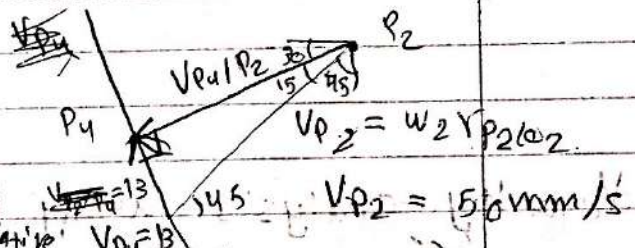 V̶P̶4̶
P2
VP4/P2
30
15
45
P4
VP2 = ω2 rP2/O2
=13
45
VP2 = 50 mm/s
VP4=13